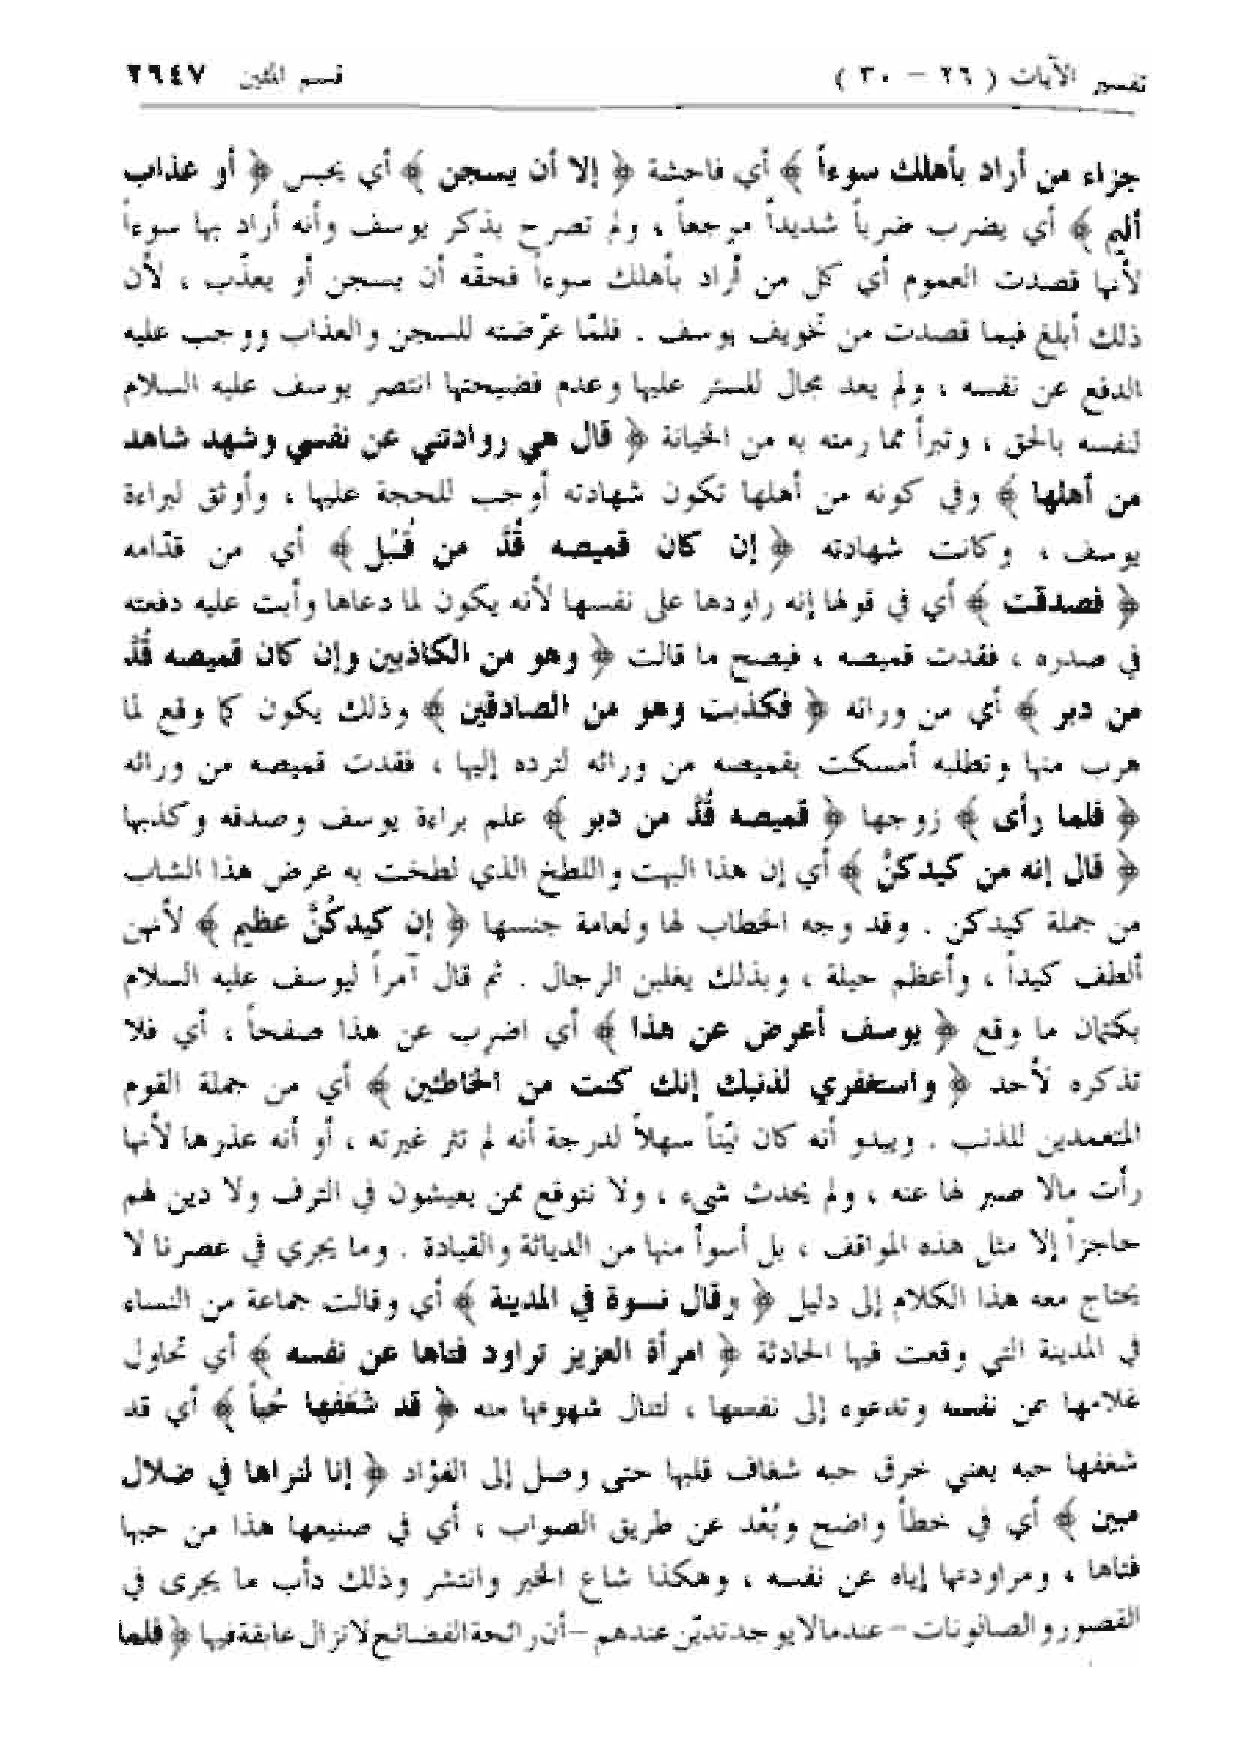 تفسير الآيات ( ٢٦ - ٣٠ ) قسم المئين ٢٦٤٧
جزاء من أراد بأهلك سوءاً ﴾ أي فاحشة ﴿ إلا أن يسجن ﴾ أي يحبس ﴿ أو عذاب
أليم ﴾ أي يضرب ضرباً شديداً موجعاً ، ولم تصرح بذكر يوسف وأنه أراد بها سوءاً
لأنها قصدت العموم أي كل من أراد بأهلك سوءاً فحقّه أن يسجن أو يعذّب ، لأن
ذلك أبلغ فيما قصدت من تخويف يوسف . فلمّا عرّضته للسجن والعذاب ووجب عليه
الدفع عن نفسه ، ولم يعد مجال للستر عليها وعدم فضيحتها انتصر يوسف عليه السلام
لنفسه بالحق ، وتبرأ مما رمته به من الخيانة ﴿ قال هي روادتني عن نفسي وشهد شاهد
من أهلها ﴾ وفي كونه من أهلها تكون شهادته أوجب للحجة عليها ، وأوثق لبراءة
يوسف ، وكانت شهادته ﴿ إن كان قميصه قُدَّ من قُبُل ﴾ أي من قدّامه
﴿ فصدقت ﴾ أي في قولها إنه راودها على نفسها لأنه يكون لما دعاها وأبت عليه دفعته
في صدره ، فقدت قميصه ، فيصح ما قالت ﴿ وهو من الكاذبين وإن كان قميصه قُدَّ
من دبر ﴾ أي من ورائه ﴿ فكذبت وهو من الصادقين ﴾ وذلك يكون كما وقع لما
هرب منها وتطلبه أمسكت بقميصه من ورائه لترده إليها ، فقدت قميصه من ورائه
﴿ فلما رأى ﴾ زوجها ﴿ قميصه قُدَّ من دبر ﴾ علم براءة يوسف وصدقه وكذبها
﴿ قال إنه من كيدكنَّ ﴾ أي إن هذا البهت واللطخ الذي لطخت به عرض هذا الشاب
من جملة كيدكن . وقد وجه الخطاب لها ولعامة جنسها ﴿ إن كيدكُنَّ عظيم ﴾ لأنهن
ألطف كيداً ، وأعظم حيلة ، وبذلك يغلبن الرجال . ثم قال آمراً ليوسف عليه السلام
بكتمان ما وقع ﴿ يوسف أعرض عن هذا ﴾ أي اضرب عن هذا صفحاً ، أي فلا
تذكره لأحد ﴿ واستغفري لذنبك إنك كنت من الخاطئين ﴾ أي من جملة القوم
المتعمدين للذنب . ويبدو أنه كان ليّناً سهلاً لدرجة أنه لم تثر غيرته ، أو أنه عذرها لأنها
رأت مالا صبر لها عنه ، ولم يحدث شيء ، ولا نتوقع ممن يعيشون في الترف ولا دين لهم
حاجزاً إلا مثل هذه المواقف ، بل أسوأ منها من الدياثة والقيادة . وما يجري في عصرنا لا
يحتاج معه هذا الكلام إلى دليل ﴿ وقال نسوة في المدينة ﴾ أي وقالت جماعة من النساء
في المدينة التي وقعت فيها الحادثة ﴿ امرأة العزيز تراود فتاها عن نفسه ﴾ أي تحاول
غلامها عن نفسه وتدعوه إلى نفسها ، لتنال شهوتها منه ﴿ قد شغفها حُباً ﴾ أي قد
شغفها حبه يعني خرق حبه شغاف قلبها حتى وصل إلى الفؤاد ﴿ إنا لنراها في ضلال
مبين ﴾ أي في خطأ واضح وبُعْد عن طريق الصواب ، أي في صنيعها هذا من حبها
فتاها ، ومراودتها إياه عن نفسه ، وهكذا شاع الخبر وانتشر وذلك دأب ما يجرى في
القصور والصالونات - عندما لا يوجد تديّن عندهم - أن رائحة الفضائح لا تزال عابقة فيها ﴿ فلما